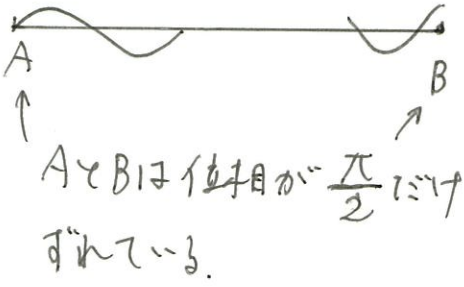 A
B
AとBは位相が π/2 だけ
ずれている.